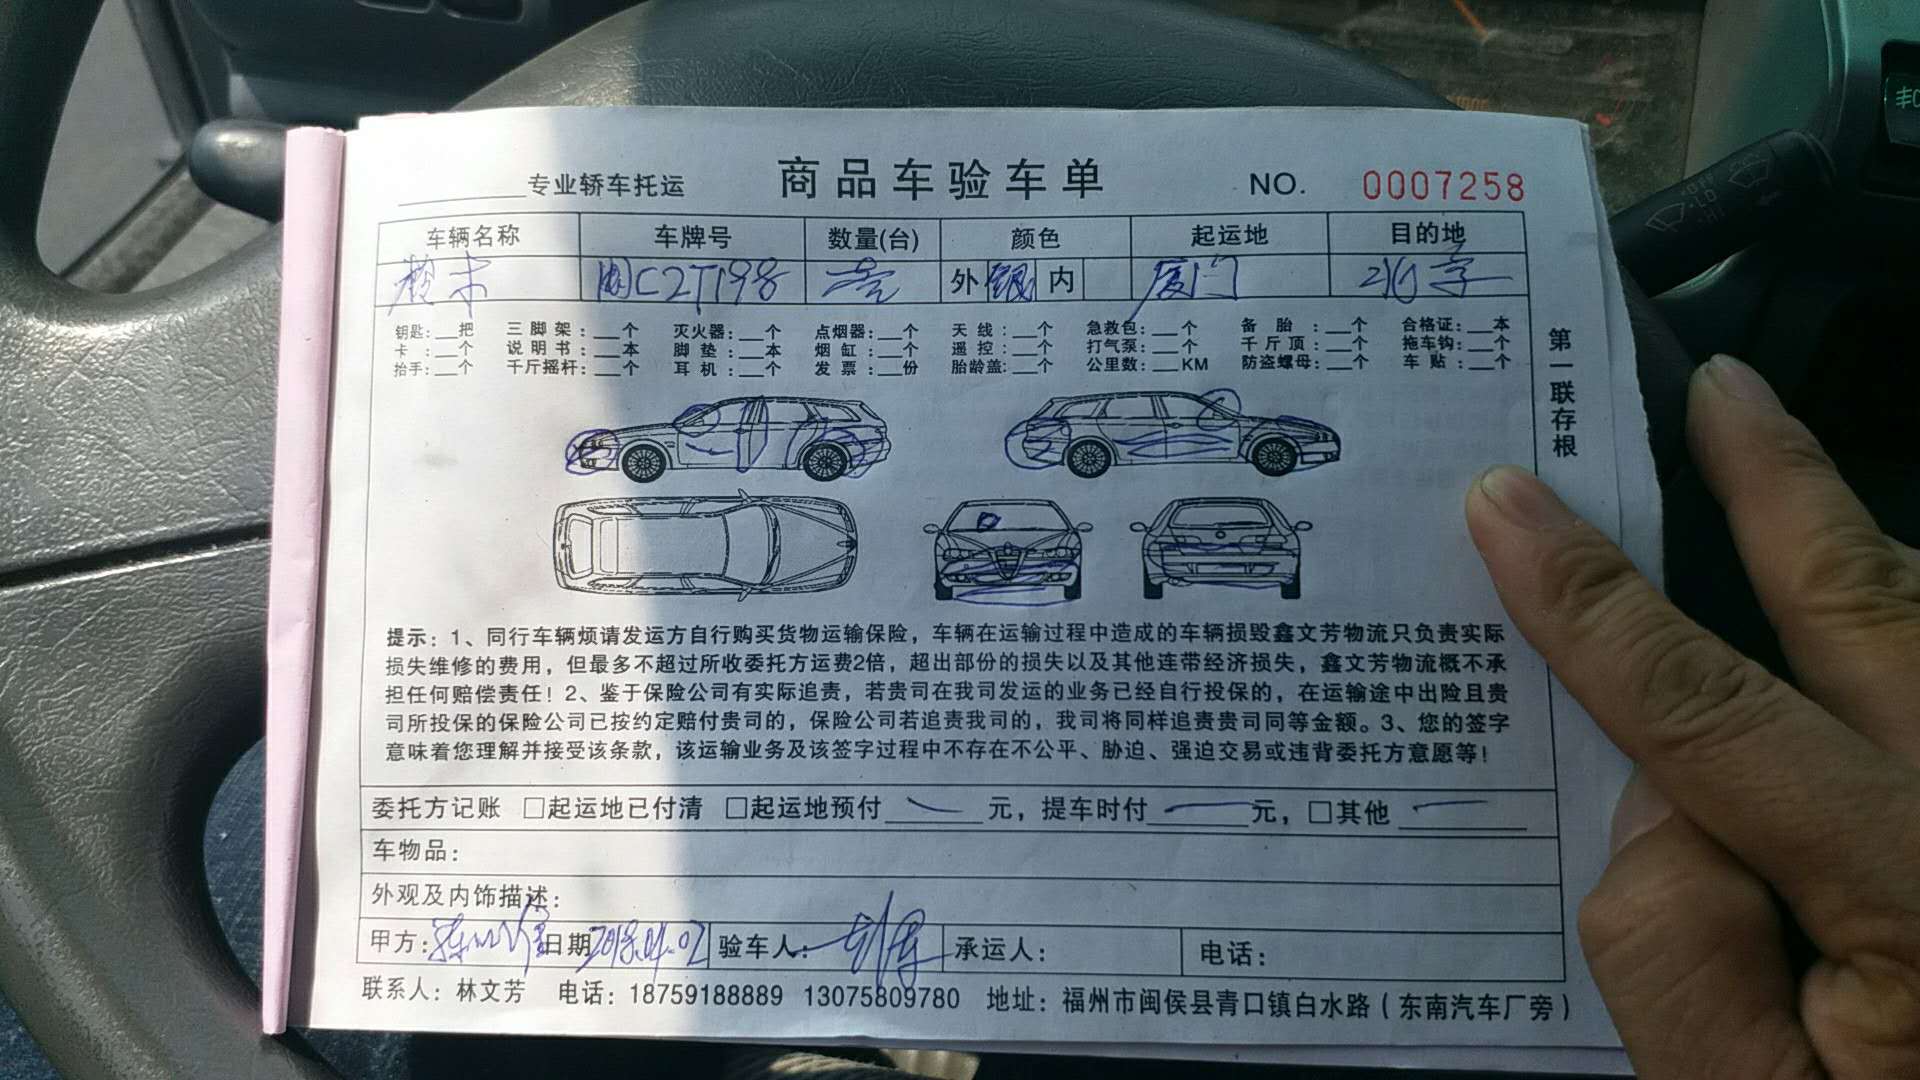 专业轿车托运 商品车验车单 NO. 0007258
车辆名称 车牌号 数量(台) 颜色 起运地 目的地
铃木 闽C2T198 壹 外 银 内 厦门 北京
钥匙:__把 三脚架:__个 灭火器:__个 点烟器:__个 天线:__个 急救包:__个 备胎:__个 合格证:__本
卡:__个 说明书:__本 脚垫:__本 烟缸:__个 遥控:__个 打气泵:__个 千斤顶:__个 拖车钩:__个
抬手:__个 千斤摇杆:__个 耳机:__个 发票:__份 胎龄盖:__个 公里数:__KM 防盗螺母:__个 车贴:__个
第一联存根
提示：1、同行车辆烦请发运方自行购买货物运输保险，车辆在运输过程中造成的车辆损毁鑫文芳物流只负责实际
损失维修的费用，但最多不超过所收委托方运费2倍，超出部份的损失以及其他连带经济损失，鑫文芳物流概不承
担任何赔偿责任！2、鉴于保险公司有实际追责，若贵司在我司发运的业务已经自行投保的，在运输途中出险且贵
司所投保的保险公司已按约定赔付贵司的，保险公司若追责我司的，我司将同样追责贵司同等金额。3、您的签字
意味着您理解并接受该条款，该运输业务及该签字过程中不存在不公平、胁迫、强迫交易或违背委托方意愿等！
委托方记账 □起运地已付清 □起运地预付______元，提车时付______元，□其他______
车物品：
外观及内饰描述：
甲方： 日期 2018.04.02 验车人： 承运人： 电话：
联系人：林文芳 电话：18759188889 13075809780 地址：福州市闽侯县青口镇白水路（东南汽车厂旁）
OFF
LO
HI